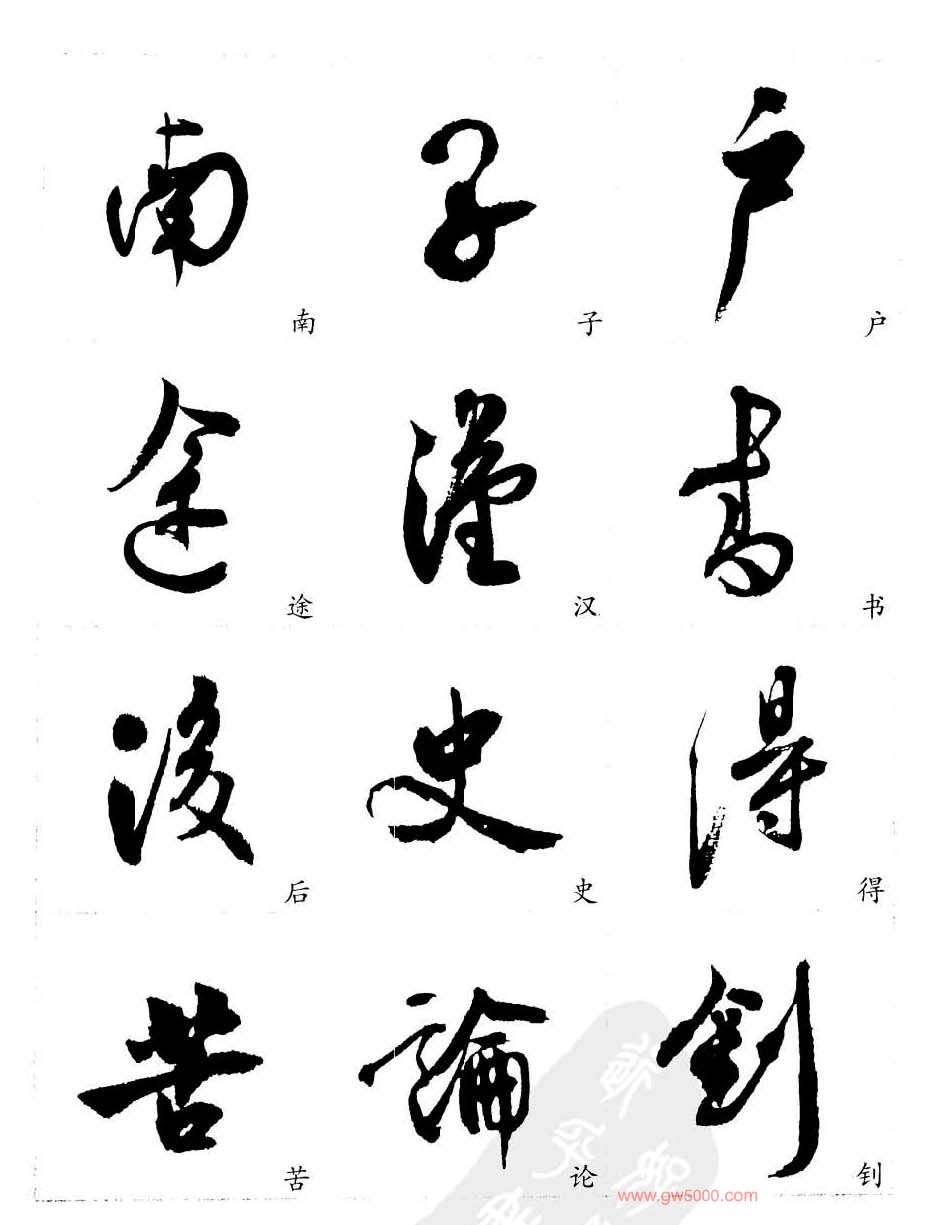 南 子 户
南 子 户
途 漢 書
途 汉 书
後 史 得
后 史 得
苦 論 釗
苦 论 钊
www.gw5000.com